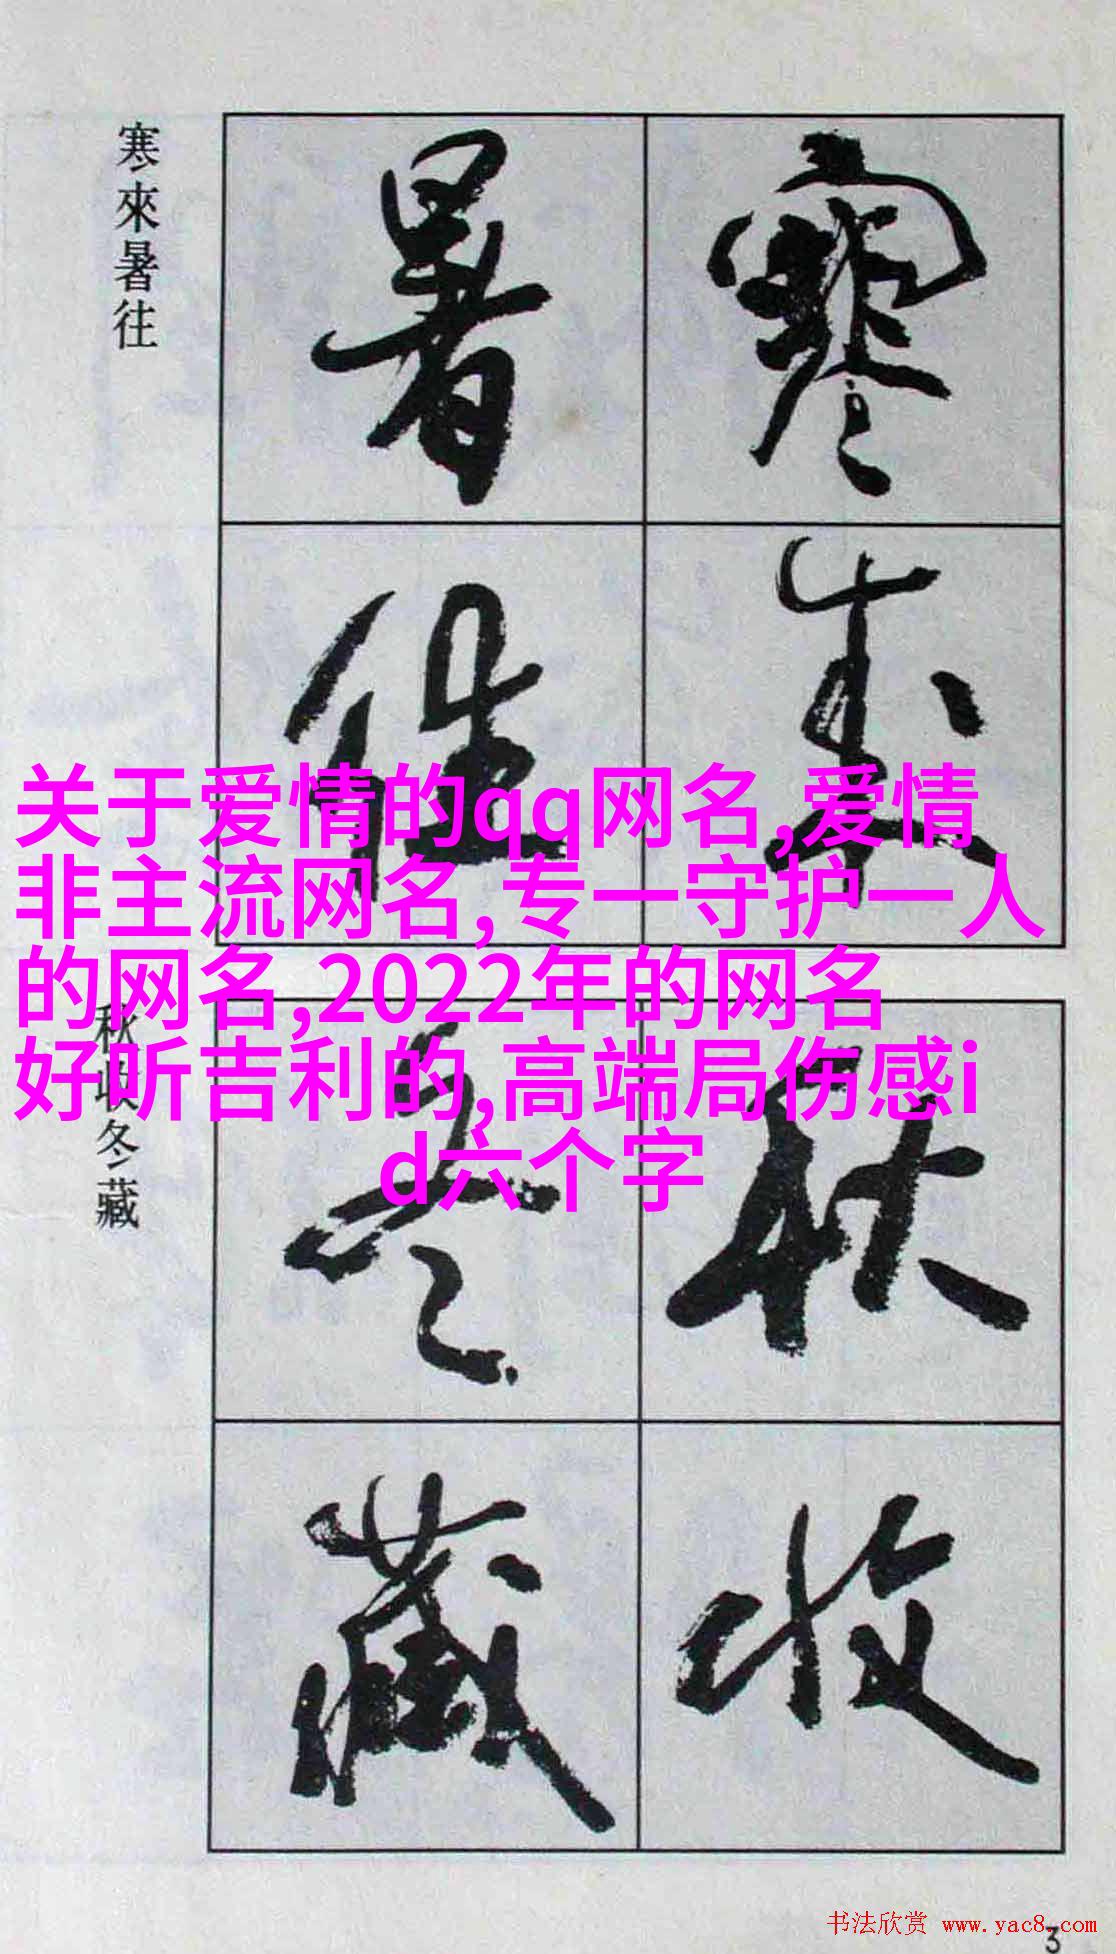 寒來暑往
寒
來
暑
往
关于爱情的qq网名,爱情
非主流网名,专一守护一人
的网名,2022年的网名
好听吉利的,高端局伤感i
d六个字
秋收冬藏
秋
收
冬
藏
书法欣赏 www.yac8.com
3